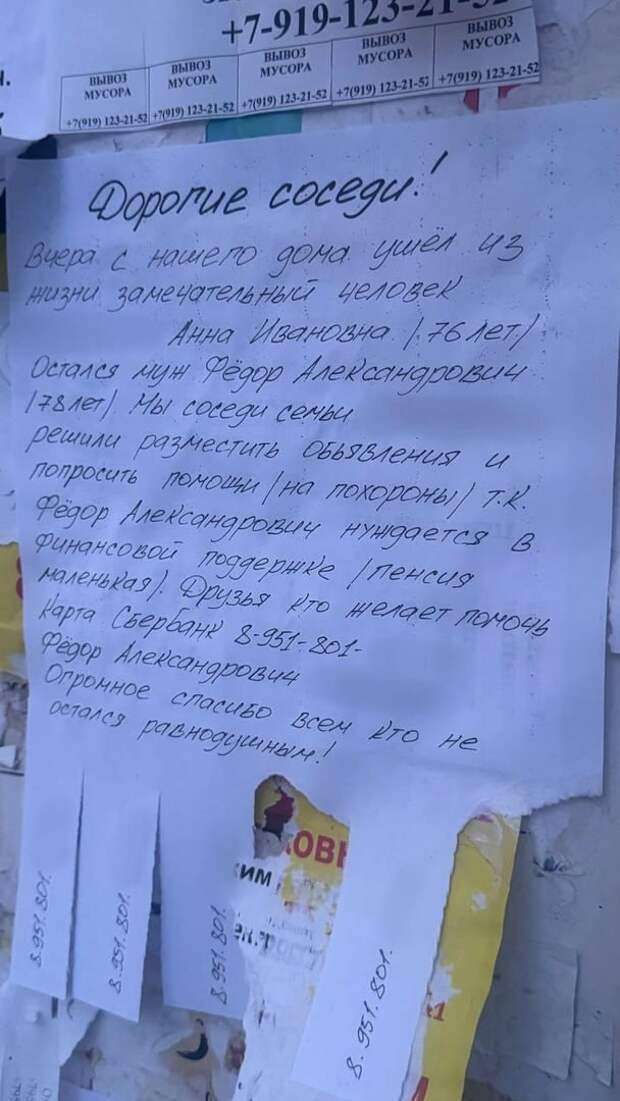 +7-919-123-21-52
ВЫВОЗ МУСОРА +7(919) 123-21-52
ВЫВОЗ МУСОРА +7(919) 123-21-52
ВЫВОЗ МУСОРА +7(919) 123-21-52
ВЫВОЗ МУСОРА +7(919) 123-21-52
ВЫВОЗ МУСОРА +7(919) 123-21-52
Дорогие соседи!
Вчера с нашего дома ушёл из
жизни замечательный человек
Анна Ивановна /76 лет/
Остался муж Фёдор Александрович
/78 лет/. Мы соседи семьи
решили разместить обьявления и
попросить помощи /на похороны/ т.к.
Фёдор Александрович нуждается в
финансовой поддержке /пенсия
маленькая/. Друзья кто желает помочь
карта Сбербанк 8-951-801-
Фёдор Александрович
Огромное спасибо всем кто не
остался равнодушным!
8.951.801.
8.951.801.
8.951.801.
8.951.801.